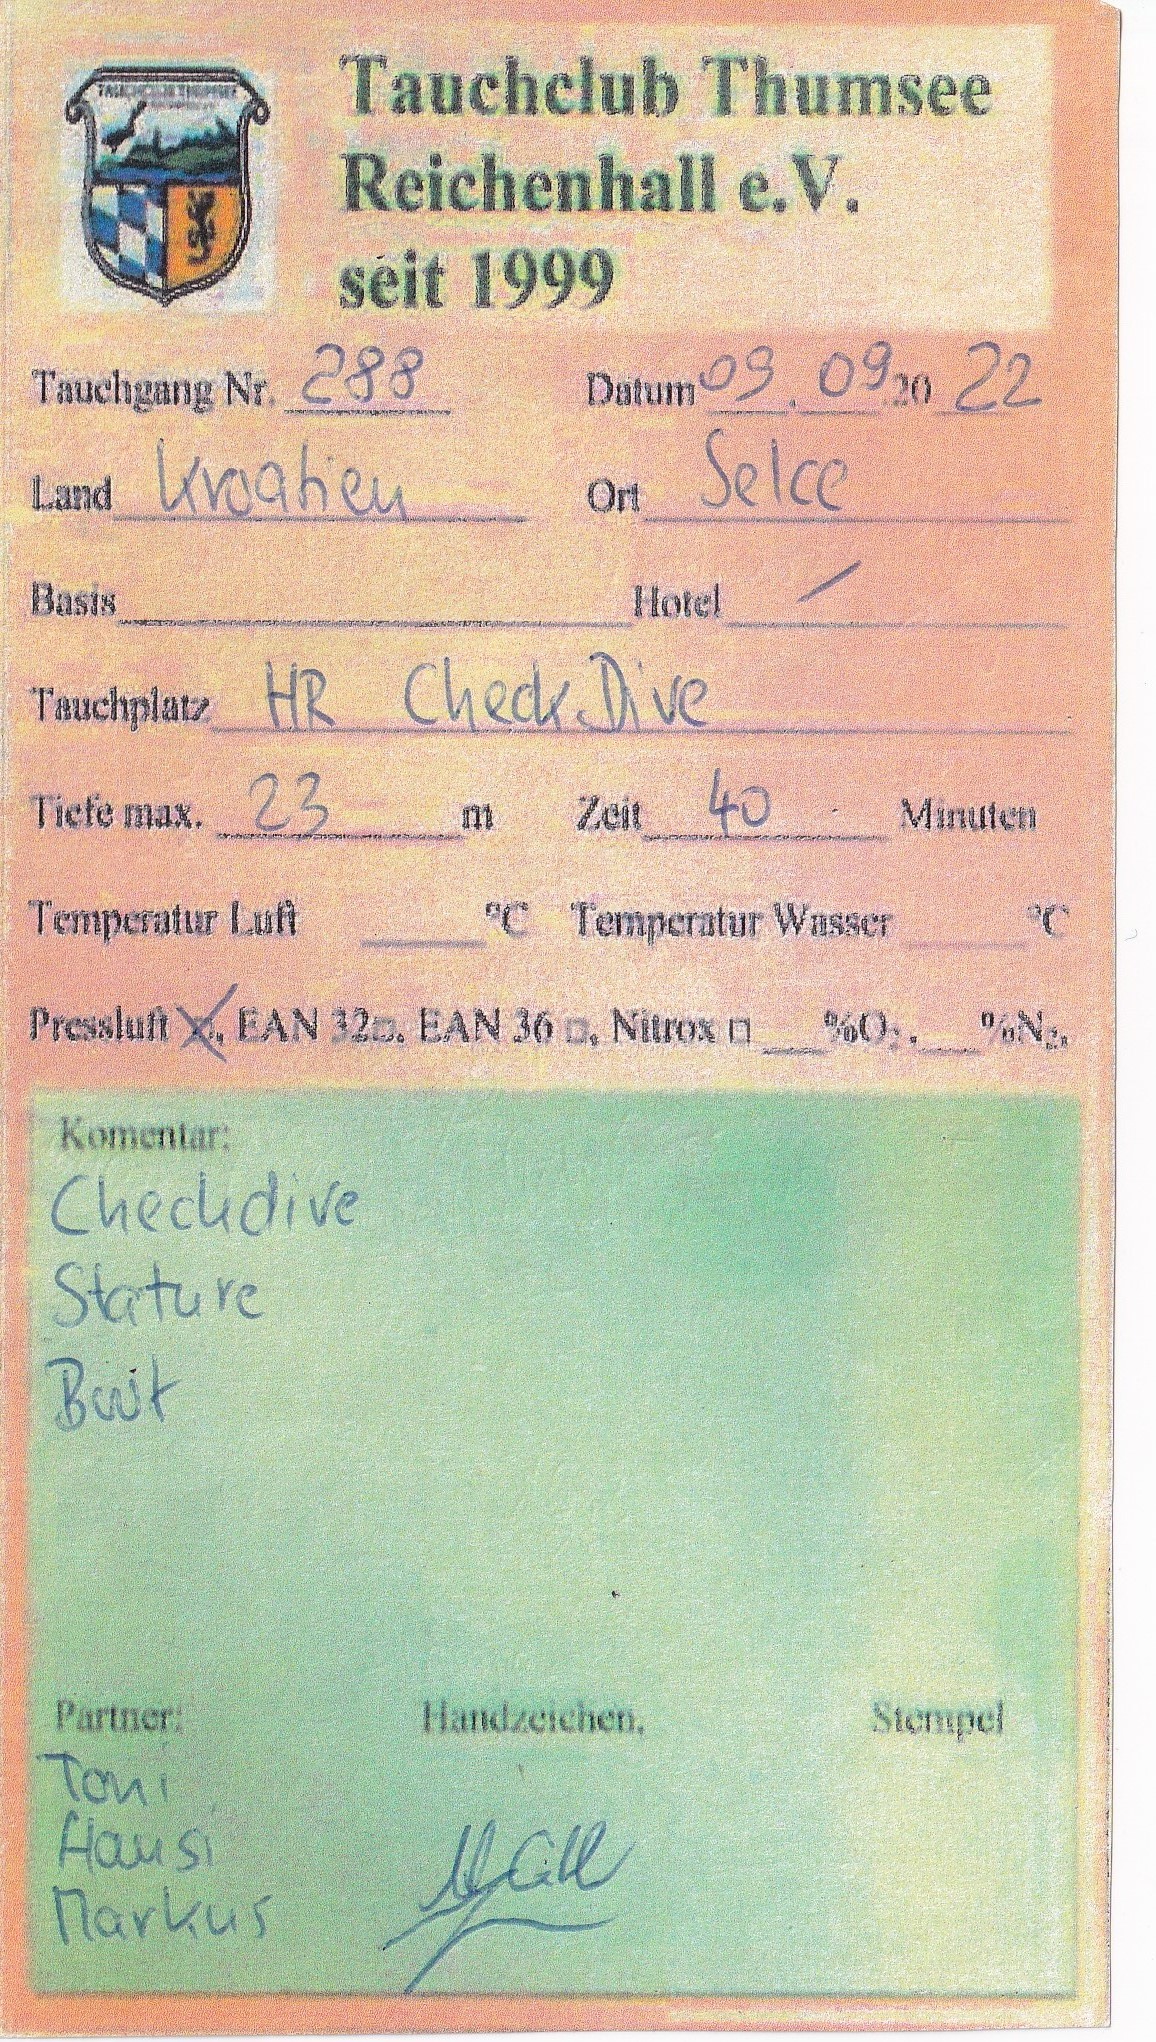 TAUCHCLUB THUMSEE
Tauchclub Thumsee
Reichenhall e.V.
seit 1999
Tauchgang Nr. 288 Datum 09.09.2022
Land Kroatien Ort Selce
Basis Hotel /
Tauchplatz HR Check Dive
Tiefe max. 23 m Zeit 40 Minuten
Temperatur Luft °C Temperatur Wasser °C
Pressluft ☒, EAN 32 □, EAN 36 □, Nitrox □ ___%O₂, ___%N₂,
Komentar:
Checkdive
Stature
Partner: Handzeichen, Stempel
Toni
Hansi
Markus